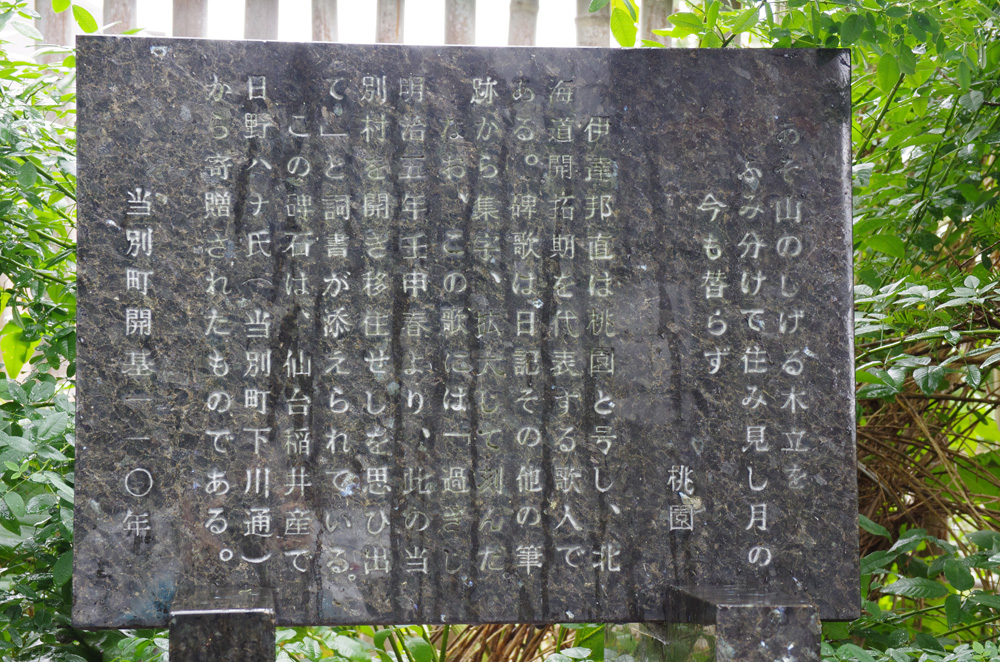 あそ山のしげる木立を
ふみ分けて住み見し月の
今も替らず
桃園
伊達邦直は桃園と号し、北
海道開拓期を代表する歌人で
ある。碑歌は、日記その他の筆
跡から集字、拡大して刻んだ
なお、この歌には「過ぎし
明治五年壬申春より、此の当
別村を開き移住せしを思ひ出
て」と詞書が添えられている。
この碑石は、仙台稲井産で
日野ハナ氏(当別町下川通)
から寄贈されたものである。
当別町開基一一〇年